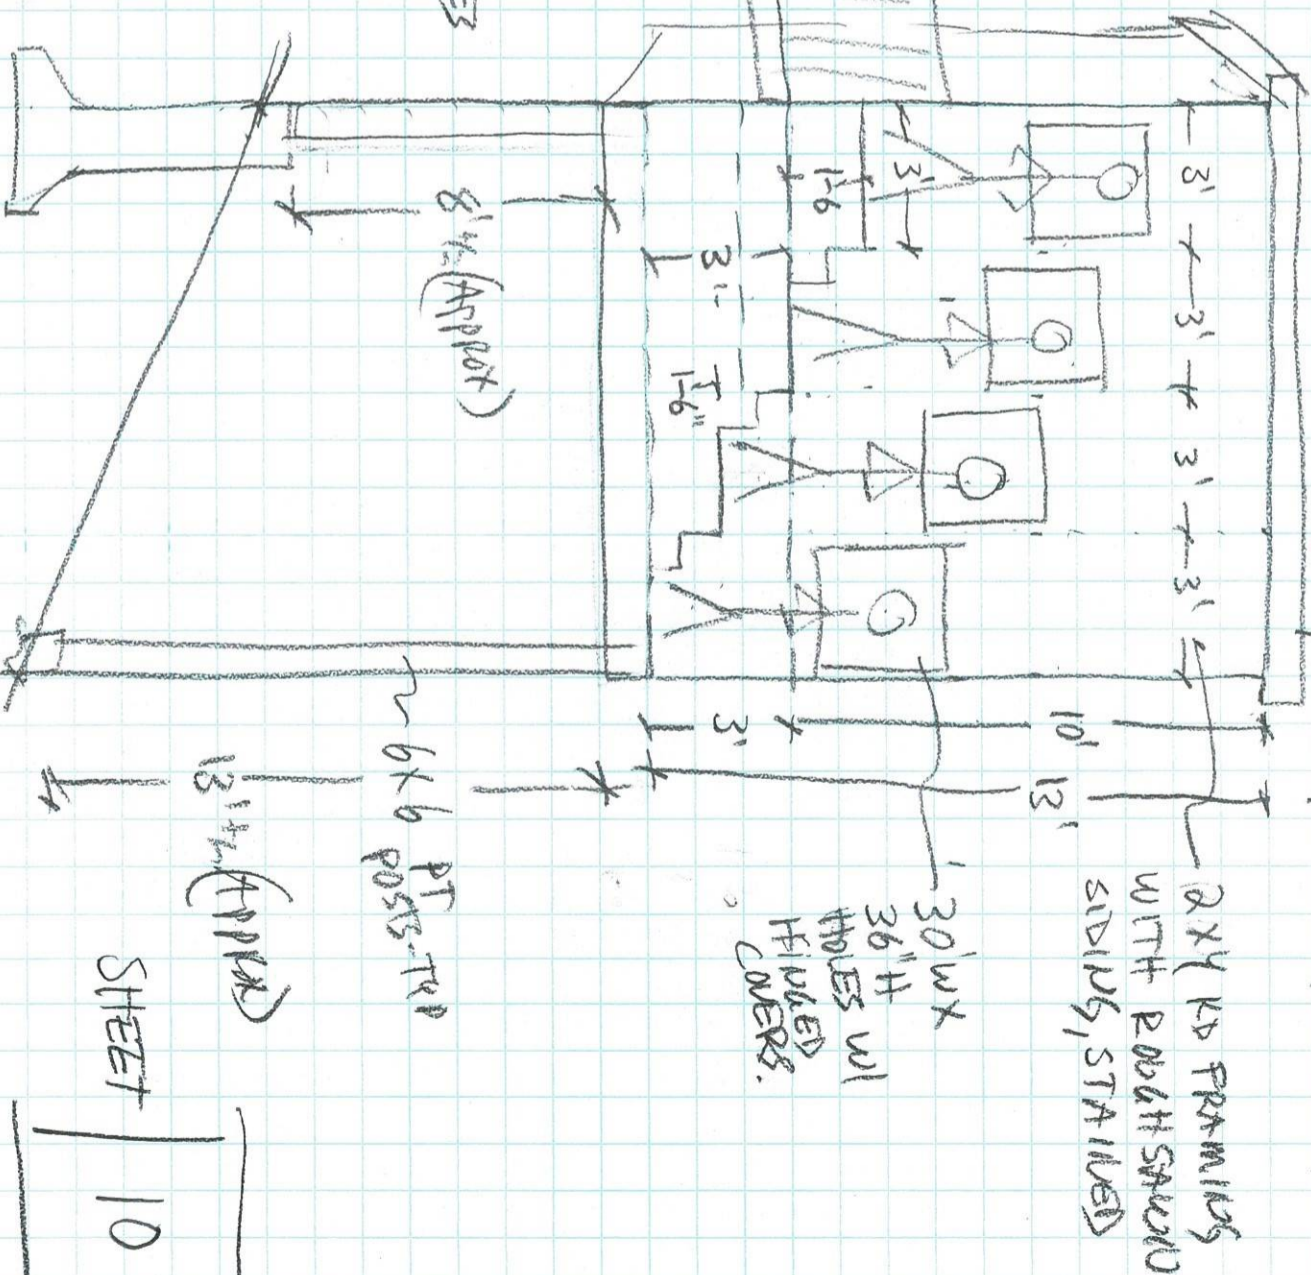 3'
3'
3'
3'
3'
1-6
3'-
1-6"
10'
3'
13'
2X4 KD FRAMING
WITH ROUGHSAWN
SIDING, STAINED
30"W X
36"H
HOLES W/
HINGED
COVERS.
8' +/- (APPROX)
6X6 PT
POSTS-TYP
13' +/- (APPROX)
SHEET
10